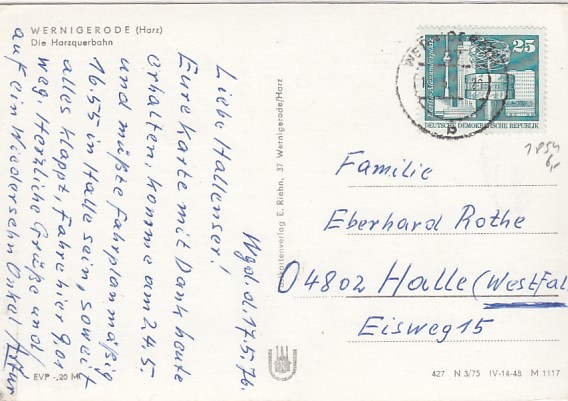 WERNIGERODE (Harz)
Die Harzquerbahn
Wgd. d. 17.5.76.
Liebe Hallenser!
Eure Karte mit Dank heute
erhalten, komme am 24.5.
und müßte fahrplanmäßig
16.55 in Halle sein, soweit
alles klappt, fahre hier 9,01
weg. Herzliche Grüße und
auf ein Wiedersehn Onkel Artur
EVP -,20 M
kartenverlag E. Riehn, 37 Wernigerode/Harz
25
DEUTSCHE DEMOKRATISCHE REPUBLIK
Familie
Eberhard Rothe
04802 Halle (Westfal
Eisweg 15
427 N 3/75 IV-14-48 M 1117